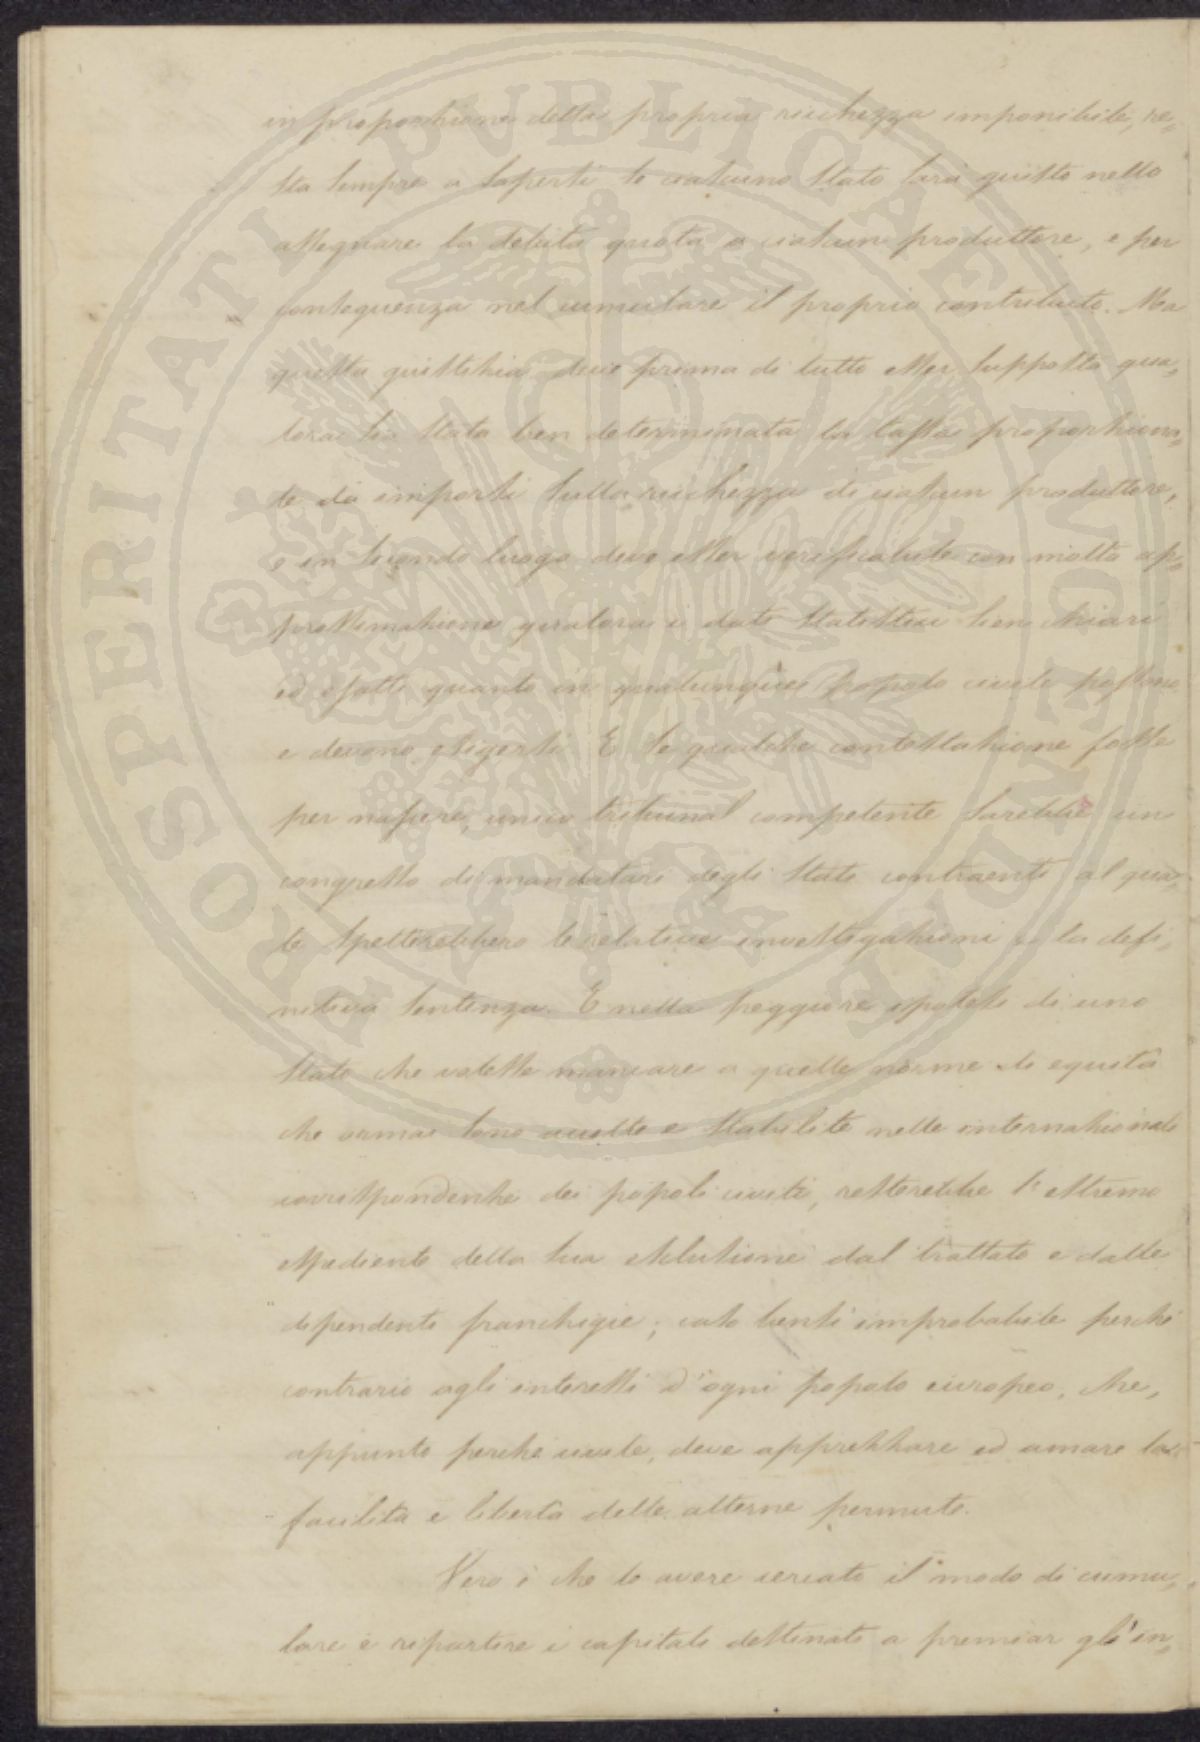 in proporzione della propria ricchezza imponibile, re„
sta sempre a sapersi se ciascuno Stato sarà giusto nello
assegnare la debita quota a ciascun produttore, e per
conseguenza nel cumulare il proprio contributo. Ma
questa giustizia deve prima di tutto esser supposta qua„
lora sia stata ben determinata la tassa proporziona„
le da imporsi sulla ricchezza di ciascun produttore,
e in secondo luogo deve esser verificabile con molta ap„
prossimazione qualora i dati statistici sien chiari
ed esatti quanto in qualunque popolo civile possono
e devono esigersi. E se qualche contestazione fosse
per nascere, unico tribunal competente sarebbe un
congresso di mandatari degli Stati contraenti al qua„
le spetterebbero le relative investigazioni e la defi„
nitiva sentenza. E nella peggiore ipotesi di uno
Stato che volesse mancare a quelle norme di equità
che ormai sono accolte e stabilite nelle internazionali
corrispondenze dei popoli civili, resterebbe l'estremo
espediente della sua esclusione dal trattato e dalle
dipendenti franchigie; caso bensì improbabile perchè
contrario agli interessi d'ogni popolo europeo, che,
appunto perchè civile, deve apprezzare ed amare la
facilità e libertà delle alterne permute.
Vero è che lo avere cercato il modo di cumu„
lare e repartire i capitali destinati a premiar gl'in„
PROSPERITATI PVBLICAE AVGENDAE